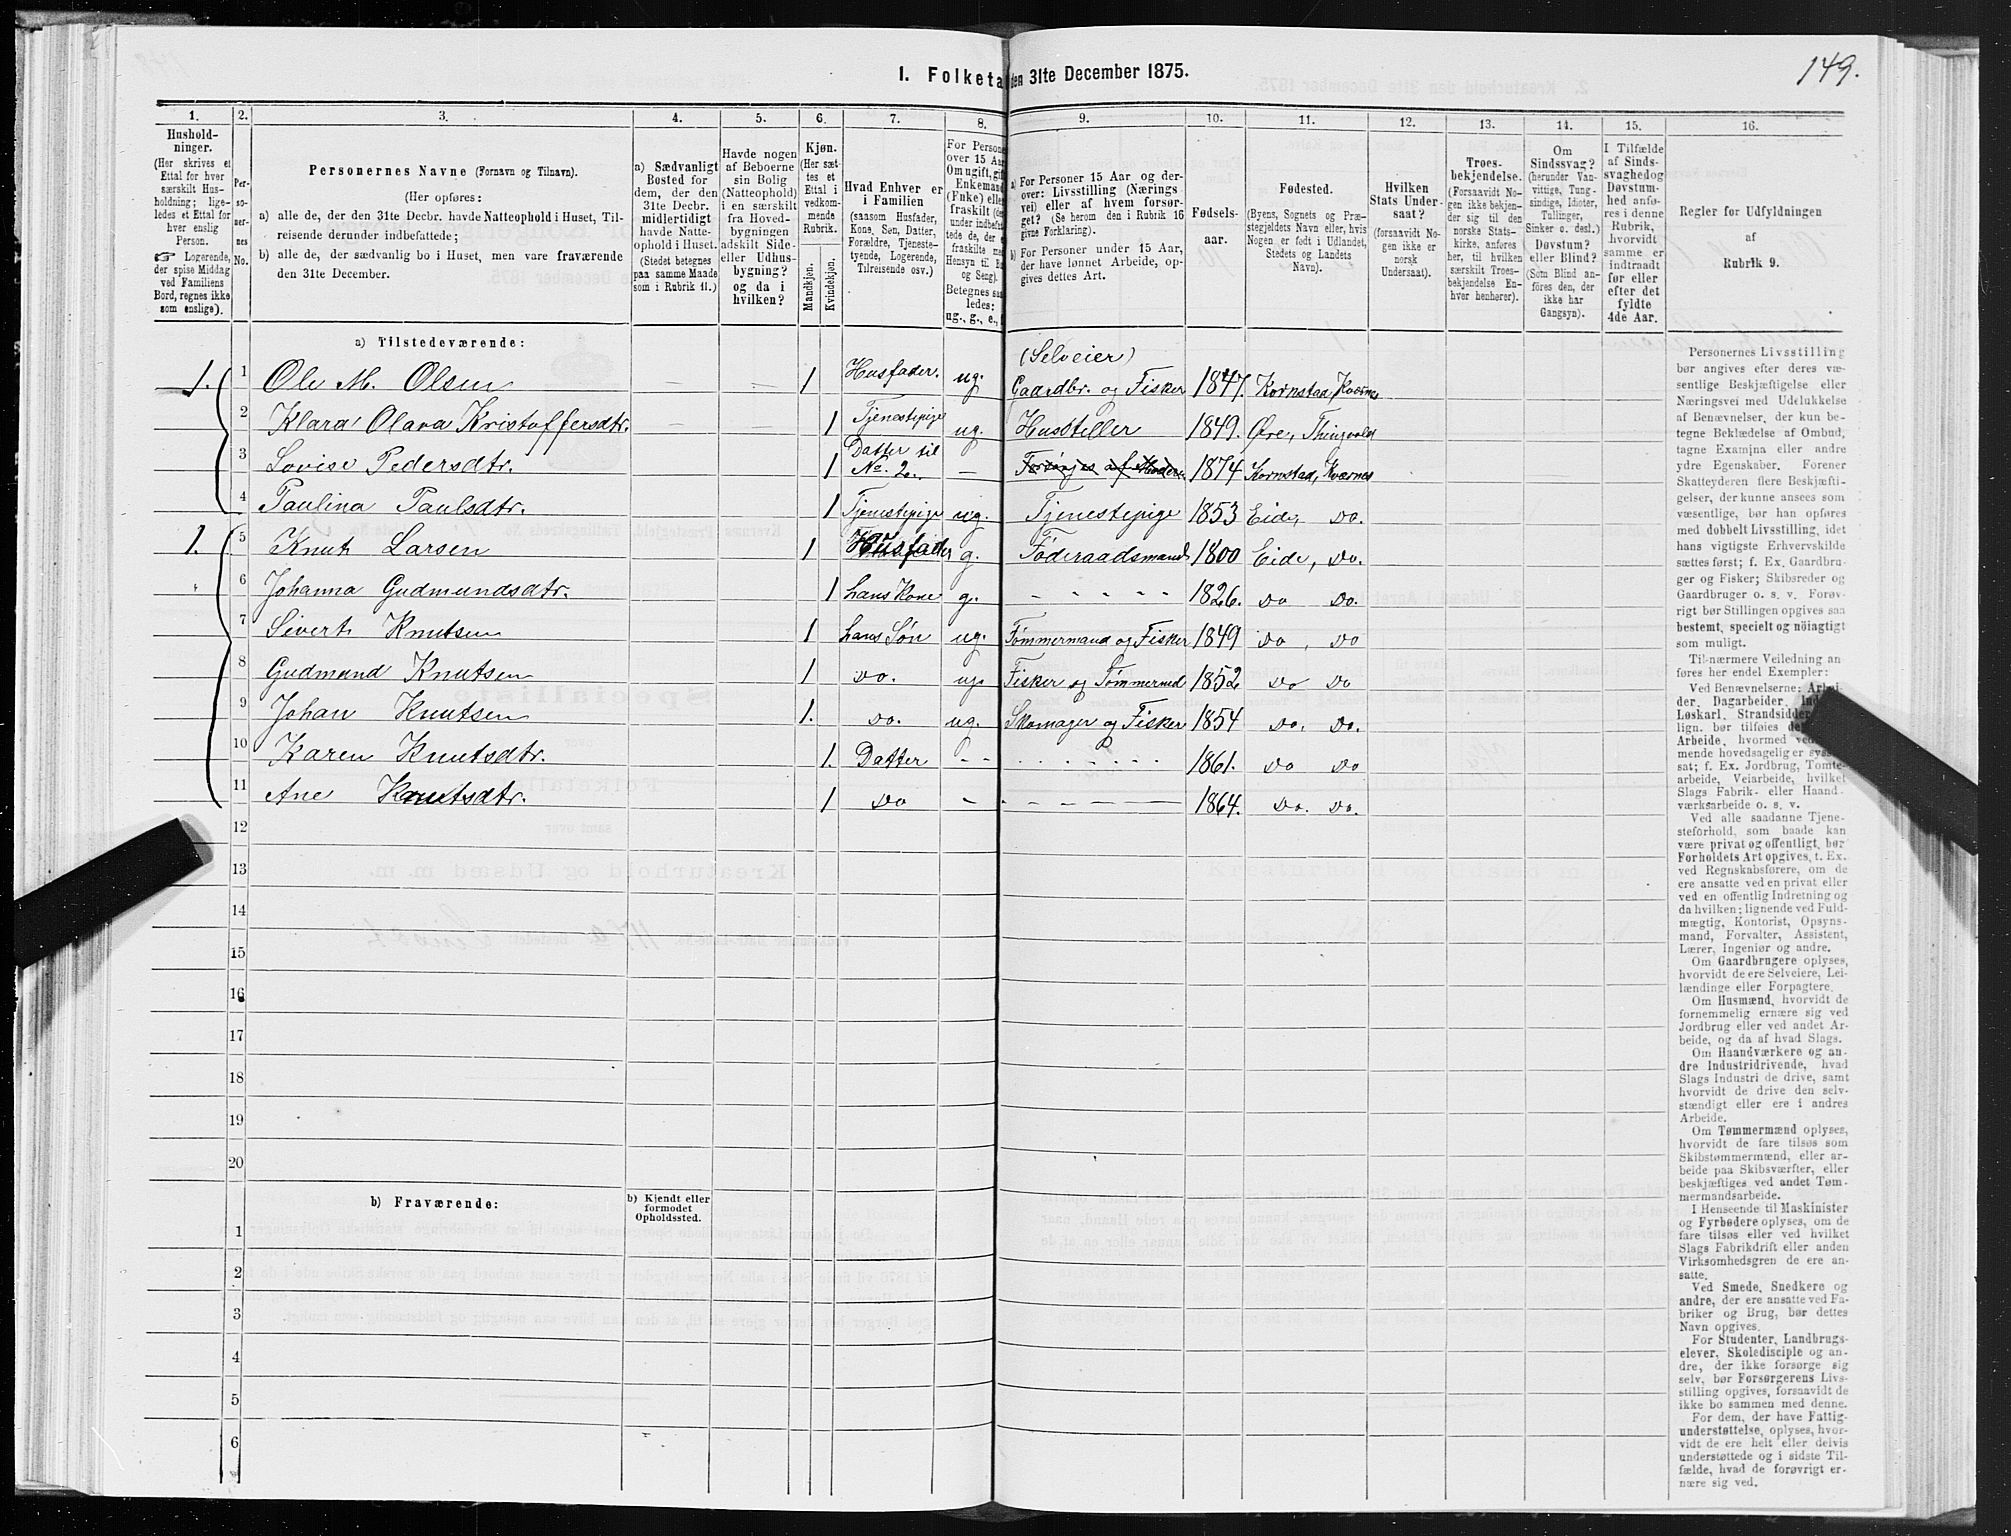 149.
1. Folketa den 31te December 1875.
1. 2. 3. 4. 5. 6. 7. 8. 9. 10. 11. 12. 13. 14. 15. 16.
Hushold-
ninger.
(Her skrives et
Ettal for hver
særskilt Hus-
holdning; lige-
ledes et Ettal for
hver enslig
Person.
☞ Logerende,
der spise Middag
ved Familiens
Bord, regnes ikke
som enslige).
Per-
so-
ner-
nes
No.
Personernes Navne (Fornavn og Tilnavn).
(Her opføres:
a) alle de, der den 31te Decbr. havde Natteophold i Huset, Til-
reisende derunder indbefattede;
b) alle de, der sædvanlig bo i Huset, men vare fraværende
den 31te December.
a) Sædvanligt
Bosted for
dem, der den
31te Decbr.
midlertidigt
havde Natte-
ophold i Huset.
(Stedet betegnes
paa samme Maade
som i Rubrik 11.)
Havde nogen
af Beboerne
sin Bolig
(Natteophold)
i en særskilt
fra Hoved-
bygningen
adskilt Side-
eller Udhus-
bygning?
og da i
hvilken?
Kjøn.
(Her sæt-
tes et
Ettal i
vedkom-
mende
Rubrik.
Mandkjøn.
Kvindekjøn.
Hvad Enhver er
i Familien
(saasom Husfader,
Kone, Søn, Datter,
Forældre, Tjeneste-
tyende, Logerende,
Tilreisende osv.)
For Persone
over 15 Aar
Om ugift, gif
Enkemand
(Enke) eller
fraskilt (de
under indbefat-
tede de, der e
fraskilte med
Hensyn til Bo
og Seng).
Betegnes saa
ledes:
ug., g., e.,
a) For Personer 15 Aar og der-
over: Livsstilling (Nærings
vei) eller af hvem forsør-
get? (Se herom den i Rubrik 16
givne Forklaring).
b) For Personer under 15 Aar,
der have lønnet Arbeide, op-
gives dettes Art.
Fødsels-
aar.
Fødested.
(Byens, Sognets og Præ-
stegjeldets Navn eller, hvis
Nogen er født i Udlandet,
Stedets og Landets
Navn).
Hvilken
Stats Under-
saat?
(forsaavidt No-
gen ikke er
norsk
Undersaat).
Troes-
bekjendelse.
(Forsaavidt No-
gen ikke bekjen-
der sig til den
norske Stats-
kirke, anføres
her, til hvilken
særskilt Troes-
bekjendelse En-
hver henhører).
Om
Sindssvag?
(herunder Van-
vittige, Tung-
sindige, Idioter,
Tullinger,
Sinker o. desl.)
Døvstum?
eller Blind?
(Som Blind an-
føres den, der
ikke har
Gangsyn).
I Tilfælde
af Sinds-
svaghed og
Døvstum-
hed anfø-
res i denne
Rubrik,
hvorvidt
samme er
indtraadt
før eller
efter det
fyldte
4de Aar.
Regler for Udfyldningen
af
Rubrik 9.
a) Tilstedeværende:
1. 1 Ole M. Olsen – – 1 Husfader. ug. (Selveier)
Gaardbr. og Fisker 1847. Kornstad, Kværnes
2 Klara Olava Kristoffersdtr. – – 1 Tjenestepige ug. Hussteller 1849. Øre, Thingvold
3 Lovise Pedersdtr. 1 Datter til
No. 2. – Forsørges af Moderen 1874 Kornstad, Kværnes
4 Paulina Paulsdtr. 1 Tjenestepige ug. Tjenestepige 1853 Eide, do.
1. 5 Knut Larsen 1 Husfader g. Føderaadsmand 1800 Eide, do.
6 Johanna Gudmundsdtr. 1 hans Kone g. – – – – – 1826. do do.
7 Sivert Knutsen 1 hans Søn ug. Tømmermand og Fisker 1849 do, do
8 Gudmund Knutsen 1 do. ug. Fisker og Tømmermd 1852 do do
9 Johan Knutsen 1. do. ug. Skomager og Fisker 1854 do. do.
10 Karen Knutsdtr. 1. Datter – – 1861. do do
11 Ane Knutsdtr. 1 do – – – – – – – 1864. do. do.
12
13
14
15
16
17
18
19
20
b) Fraværende:
b) Kjendt eller
formodet
Opholdssted.
1
2
3
4
5
6
Personernes Livsstilling
bør angives efter deres væ-
sentlige Beskjæftigelse eller
Næringsvei med Udelukkelse
af Benævnelser, der kun be-
tegne Beklædelse af Ombud,
tagne Examina eller andre
ydre Egenskaber. Forener
Skatteyderen flere Beskjæfti-
gelser, der kunne ansees som
væsentlige, bør han opføres
med dobbelt Livsstilling, idet
hans vigtigste Erhvervskilde
sættes først; f. Ex. Gaardbru-
ger og Fisker; Skibsreder og
Gaardbruger o. s. v. Forøv-
rigt bør Stillingen opgives saa
bestemt, specielt og nöiagtigt
som muligt.
Til nærmere Veiledning an-
føres her endel Exempler:
Ved Benævnelserne: Arbei-
der, Dagarbeider, Ind
Løskarl, Strandsidder
lign. bør tilføies de
Arbeide, hvormed ved
mende hovedsagelig er syss
sat; f. Ex. Jordbrug, Tomte-
arbeide, Veiarbeide, hvilket
Slags Fabrik- eller Haand-
værksarbeide o. s. v.
Ved alle saadanne Tjene-
steforhold, som baade kan
være privat og offentligt, bør
Forholdets Art opgives, t. Ex.
ved Regnskabsførere, om de
ere ansatte ved en privat eller
ved en offentlig Indretning og
da hvilken; lignende ved Fuld-
mægtig, Kontorist, Opsyns-
mand, Forvalter, Assistent,
Lærer, Ingeniør og andre.
Om Gaardbrugere oplyses,
hvorvidt de ere Selveiere, Lei-
lændinge eller Forpagtere.
Om Husmænd, hvorvidt de
fornemmelig ernære sig ved
Jordbrug eller ved andet Ar-
beide, og da af hvad Slags.
Om Haandværkere og an-
dre Industridrivende, hvad
Slags Industri de drive, samt
hvorvidt de drive den selv-
stændigt eller ere i andres
Arbeide.
Om Tømmermænd oplyses,
hvorvidt de fare tilsøs som
Skibstømmermænd, eller ar-
beide paa Skibsværfter, eller
beskjæftiges ved andet Tøm-
mermandsarbeide.
I Henseende til Maskinister
og Fyrbødere oplyses, om de
fare tilsøs eller ved hvilket
Slags Fabrikdrift eller anden
Virksomhedsgren de ere an-
satte.
Ved Smede, Snedkere og
andre, der ere ansatte ved Fa-
briker og Brug, bør dettes
Navn opgives.
For Studenter, Landbrugs-
elever, Skoledisciple og an-
dre, der ikke forsørge sig
selv, bør Forsørgerens Livs-
stilling opgives, forsaavidt de
ikke bo sammen med denne.
For dem, der have Fattig-
understøttelse, oplyses, hvor-
vidt de ere helt eller delvis
understøttede og i sidste Til-
fælde, hvad de forøvrigt er-
nære sig ved.